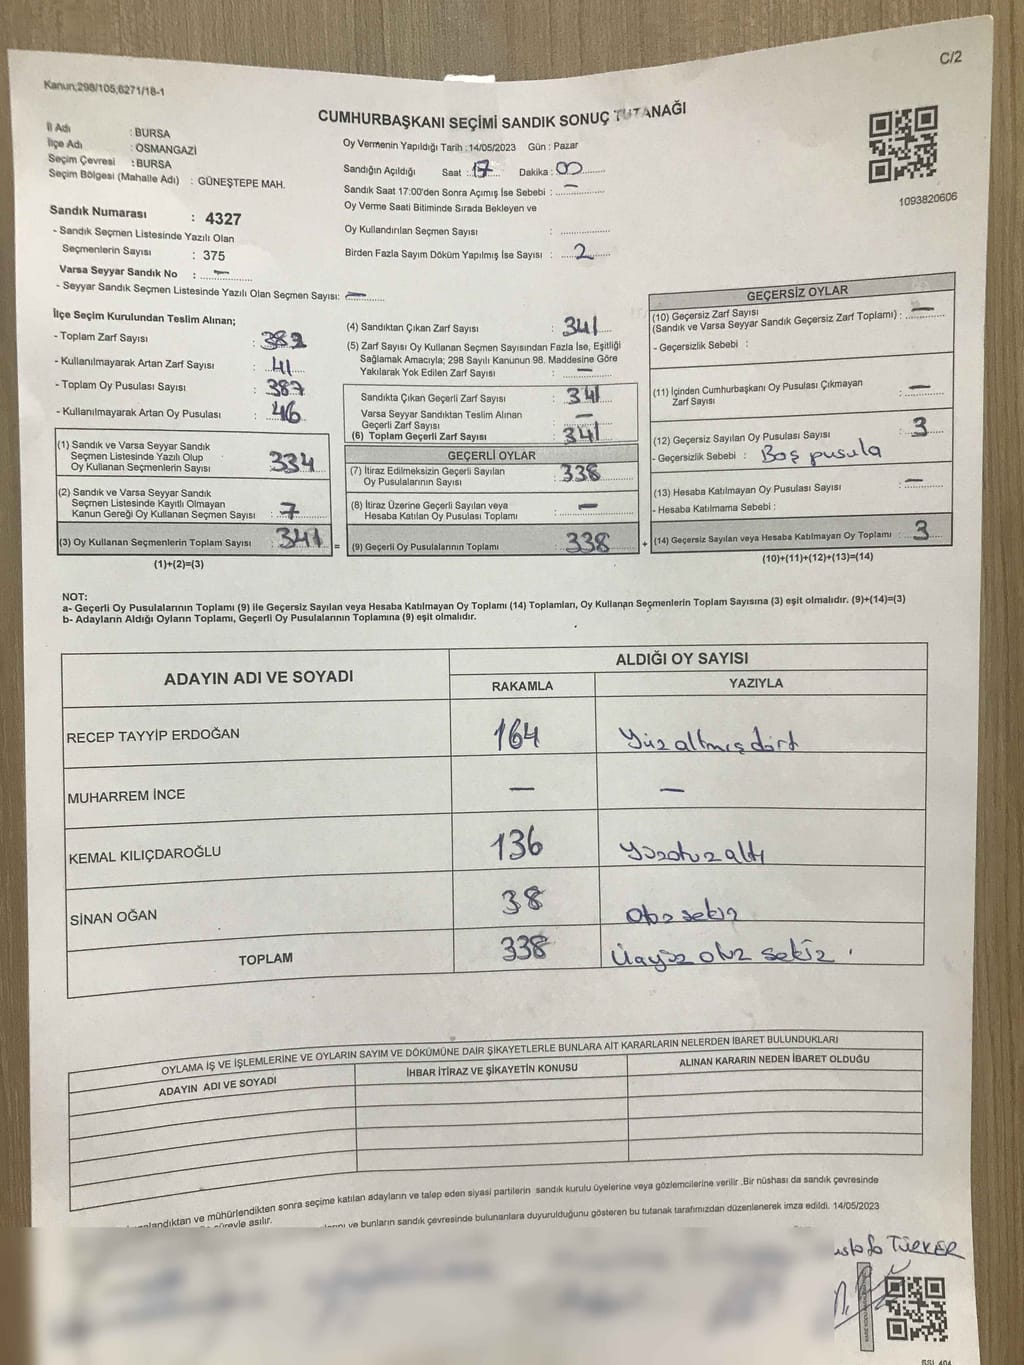 C/2
Kanun;298/105,6271/18-1
CUMHURBAŞKANI SEÇİMİ SANDIK SONUÇ TUTANAĞI
İl Adı : BURSA
İlçe Adı : OSMANGAZİ
Seçim Çevresi : BURSA
Seçim Bölgesi (Mahalle Adı) : GÜNEŞTEPE MAH.
Oy Vermenin Yapıldığı Tarih :14/05/2023 Gün : Pazar
Sandığın Açıldığı Saat : 17 Dakika : 00
Sandık Saat 17:00'den Sonra Açımış İse Sebebi : —
Oy Verme Saati Bitiminde Sırada Bekleyen ve
Oy Kullandırılan Seçmen Sayısı :
Birden Fazla Sayım Döküm Yapılmış İse Sayısı : 2
1093820606
Sandık Numarası : 4327
- Sandık Seçmen Listesinde Yazılı Olan
Seçmenlerin Sayısı : 375
Varsa Seyyar Sandık No : —
- Seyyar Sandık Seçmen Listesinde Yazılı Olan Seçmen Sayısı: —
İlçe Seçim Kurulundan Teslim Alınan;
- Toplam Zarf Sayısı : 382
- Kullanılmayarak Artan Zarf Sayısı : 41
- Toplam Oy Pusulası Sayısı : 387
- Kullanılmayarak Artan Oy Pusulası : 46
(1) Sandık ve Varsa Seyyar Sandık
Seçmen Listesinde Yazılı Olup
Oy Kullanan Seçmenlerin Sayısı : 334
(2) Sandık ve Varsa Seyyar Sandık
Seçmen Listesinde Kayıtlı Olmayan
Kanun Gereği Oy Kullanan Seçmen Sayısı : 7
(3) Oy Kullanan Seçmenlerin Toplam Sayısı : 341 =
(1)+(2)=(3)
(4) Sandıktan Çıkan Zarf Sayısı : 341
(5) Zarf Sayısı Oy Kullanan Seçmen Sayısından Fazla İse, Eşitliği
Sağlamak Amacıyla; 298 Sayılı Kanunun 98. Maddesine Göre
Yakılarak Yok Edilen Zarf Sayısı : —
Sandıkta Çıkan Geçerli Zarf Sayısı : 341
Varsa Seyyar Sandıktan Teslim Alınan
Geçerli Zarf Sayısı : —
(6) Toplam Geçerli Zarf Sayısı : 341
GEÇERLİ OYLAR
(7) İtiraz Edilmeksizin Geçerli Sayılan
Oy Pusulalarının Sayısı : 338
(8) İtiraz Üzerine Geçerli Sayılan veya
Hesaba Katılan Oy Pusulası Toplamı : —
(9) Geçerli Oy Pusulalarının Toplamı : 338 +
GEÇERSİZ OYLAR
(10) Geçersiz Zarf Sayısı
(Sandık ve Varsa Seyyar Sandık Geçersiz Zarf Toplamı) : —
- Geçersizlik Sebebi :
(11) İçinden Cumhurbaşkanı Oy Pusulası Çıkmayan
Zarf Sayısı : —
(12) Geçersiz Sayılan Oy Pusulası Sayısı : 3
- Geçersizlik Sebebi : Boş pusula
(13) Hesaba Katılmayan Oy Pusulası Sayısı : —
- Hesaba Katılmama Sebebi :
(14) Geçersiz Sayılan veya Hesaba Katılmayan Oy Toplamı : 3
(10)+(11)+(12)+(13)=(14)
NOT:
a- Geçerli Oy Pusulalarının Toplamı (9) ile Geçersiz Sayılan veya Hesaba Katılmayan Oy Toplamı (14) Toplamları, Oy Kullanan Seçmenlerin Toplam Sayısına (3) eşit olmalıdır. (9)+(14)=(3)
b- Adayların Aldığı Oyların Toplamı, Geçerli Oy Pusulalarının Toplamına (9) eşit olmalıdır.
ADAYIN ADI VE SOYADI
ALDIĞI OY SAYISI
RAKAMLA YAZIYLA
RECEP TAYYİP ERDOĞAN 164 Yüz altmış dört
MUHARREM İNCE — —
KEMAL KILIÇDAROĞLU 136 Yüzotuz altı
SİNAN OĞAN 38 Otuz sekiz
TOPLAM 338 Üçyüz otuz sekiz
OYLAMA İŞ VE İŞLEMLERİNE VE OYLARIN SAYIM VE DÖKÜMÜNE DAİR ŞİKAYETLERLE BUNLARA AİT KARARLARIN NELERDEN İBARET BULUNDUKLARI
ADAYIN ADI VE SOYADI İHBAR İTİRAZ VE ŞİKAYETİN KONUSU ALINAN KARARIN NEDEN İBARET OLDUĞU
ve mühürlendikten sonra seçime katılan adayların ve talep eden siyasi partilerin sandık kurulu üyelerine veya gözlemcilerine verilir .Bir nüshası da sandık çevresinde
süreyle asılır.
ve bunların sandık çevresinde bulunanlara duyurulduğunu gösteren bu tutanak tarafımızdan düzenlenerek imza edildi. 14/05/2023
TÜRKER